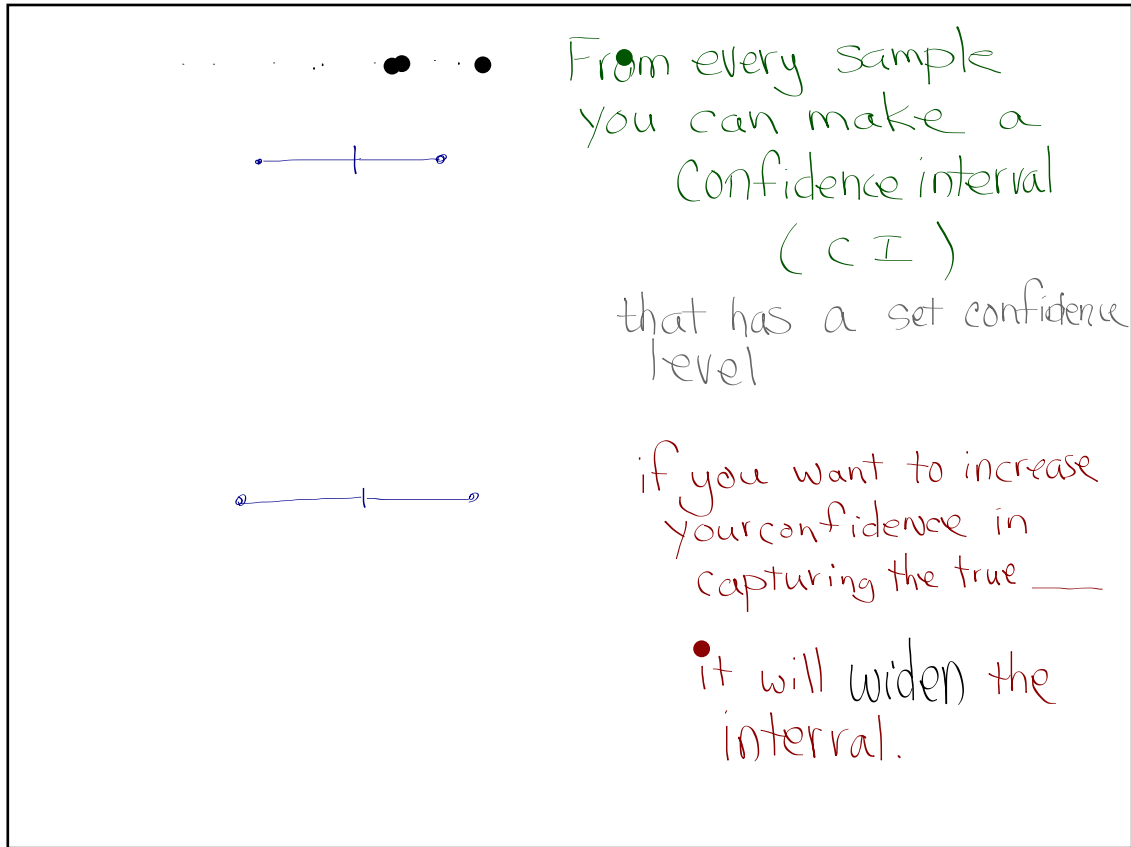 From every sample
you can make a
Confidence interval
( C I )
that has a set confidence
level
if you want to increase
your confidence in
capturing the true ____
it will widen the
interval.